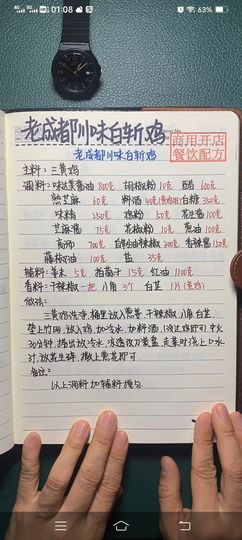 01:08
63%
老成都川味白斩鸡
商用开店
餐饮配方
老成都川味白斩鸡
主料：三黄鸡
调料：味达美酱油 800克 胡椒粉 10克 陈醋 600克
熟芝麻 60克 料酒 40克(煮鸡用) 白糖 350克
味精 250克 鸡粉 50克 花生酱 100克
芝麻酱 75克 花椒粉 10克 葱油 100克
高汤 700克 白 油辣椒 300克 香辣酱 150克
藤椒油 100克 盐 35克
辅料：姜末 5克 15克 红油 1100克
香料：干辣椒一把 八角 3个 白芷 1片(煮鸡)
做法：
三黄鸡洗净，桶里放入葱姜、干辣椒、八角、白芷，
垫上竹网，放入鸡，加冷水，加料酒，(没过鸡即可)中火
30分钟，捞出放冷水，凉透改刀装盘，走菜时浇上口水
汁，放花生碎，撒上葱花即可。
备注：
以上调料加辅料搅匀